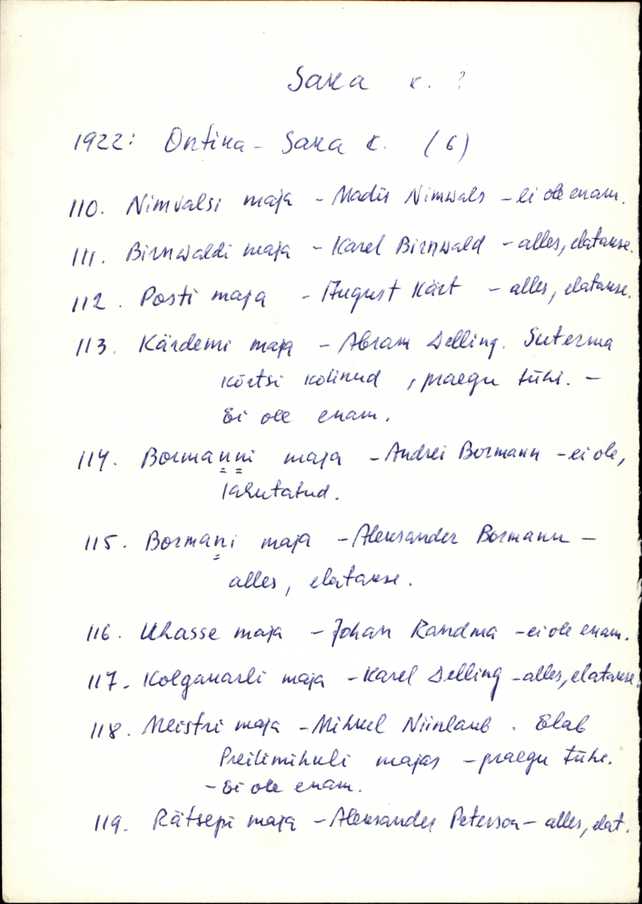 Saka k. ?
1922: Ontika - Saka k. (6)
110. Nimvalsi maja - Madis Nimwals - ei ole enam.
111. Birnwaldi maja - Karel Birnwald - alles, elatakse.
112. Posti maja - August Kärt - alles, elatakse.
113. Kärdemi maja - Abram Delling. Suterma
kõrtsi kolinud, praegu tühi. -
Ei ole enam.
114. Bormanni maja - Andrei Bormann - ei ole,
lahutatud.
115. Bormani maja - Aleksander Bormann -
alles, elatakse.
116. Uhasse maja - Johan Randma - ei ole enam.
117. Kolgakarli maja - Karel Delling - alles, elatakse.
118. Meistri maja - Mihkel Niinlaub. Elab
Preilimihkli majas - praegu tühi.
- Ei ole enam.
119. Rätsepi maja - Aleksander Peterson - alles, elat.